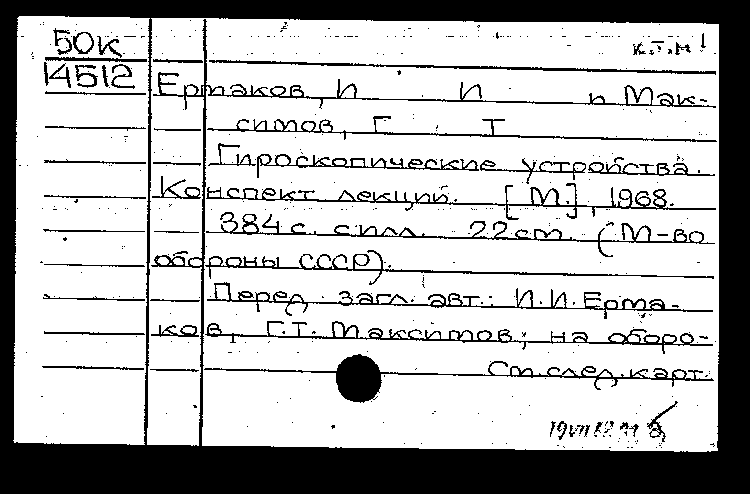 50к
К.Т.М
14512
Ермаков, И И и Мак-
симов, Г. Т
Гироскопические устройства.
Конспект лекций. [М.], 1968.
384 с. с илл. 22 см. (М-во
обороны СССР).
Перед загл. авт.: И.И. Ерма-
ков, Г.Т. Максимов; на оборо-
См. след. карт.